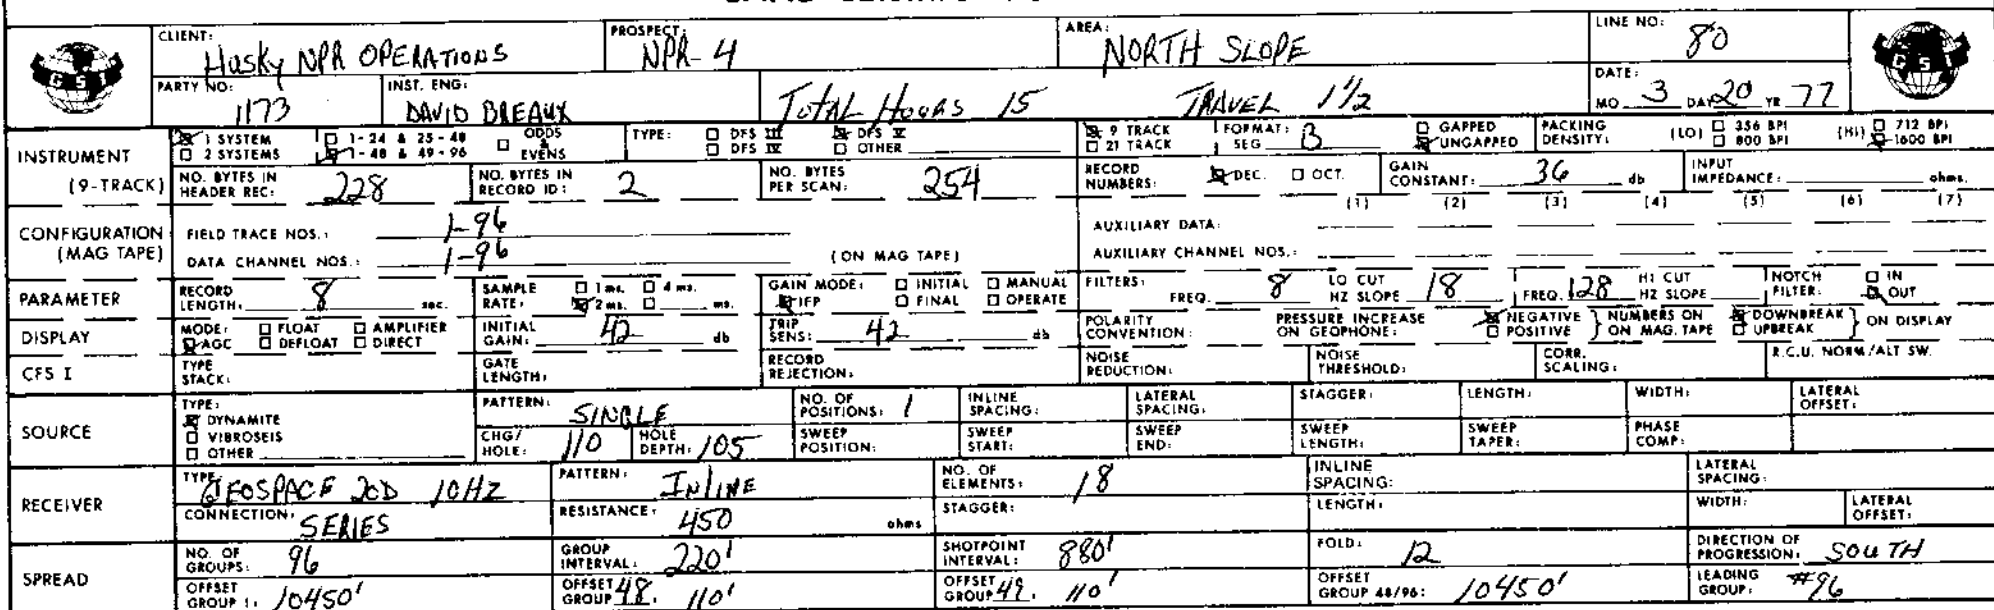 CLIENT: Husky NPR OPERATIONS PROSPECT: NPR-4 AREA: NORTH SLOPE LINE NO: 80
GSI GSI
PARTY NO: 1173 INST. ENG: DAVID BREAUX TOTAL HOURS 15 TRAVEL 1 1/2 DATE: MO 3 DAY 20 YR 77
INSTRUMENT (9-TRACK)
☒ 1 SYSTEM ☐ 1-24 & 25-48 ☐ ODDS & EVENS TYPE: ☐ DFS III ☒ DFS V ☒ 9 TRACK FORMAT: SEG B ☐ GAPPED PACKING DENSITY: (LO) ☐ 356 BPI (HI) ☐ 712 BPI
☐ 2 SYSTEMS ☒ 1-48 & 49-96 ☐ DFS IV ☐ OTHER ☐ 21 TRACK ☒ UNGAPPED ☐ 800 BPI ☒ 1600 BPI
NO. BYTES IN HEADER REC: 228 NO. BYTES IN RECORD ID: 2 NO. BYTES PER SCAN: 254 RECORD NUMBERS: ☒ DEC. ☐ OCT. GAIN CONSTANT: 36 db INPUT IMPEDANCE: ohms.
(1) (2) (3) (4) (5) (6) (7)
CONFIGURATION (MAG TAPE)
FIELD TRACE NOS.: 1-96 AUXILIARY DATA:
DATA CHANNEL NOS.: 1-96 (ON MAG TAPE) AUXILIARY CHANNEL NOS.:
PARAMETER RECORD LENGTH: 8 sec. SAMPLE RATE: ☐ 1 ms. ☐ 4 ms. ☒ 2 ms. ☐ ms. GAIN MODE: ☐ INITIAL ☐ MANUAL ☒ IFP ☐ FINAL ☐ OPERATE FILTERS: FREQ. 8 LO CUT HZ SLOPE 18 FREQ. 128 HI CUT HZ SLOPE NOTCH FILTER: ☐ IN ☒ OUT
DISPLAY MODE: ☐ FLOAT ☐ AMPLIFIER ☒ AGC ☐ DEFLOAT ☐ DIRECT INITIAL GAIN: 42 db TRIP SENS: 42 db POLARITY CONVENTION: PRESSURE INCREASE ON GEOPHONE: ☒ NEGATIVE ☐ POSITIVE } NUMBERS ON ON MAG. TAPE ☒ DOWNBREAK ☐ UPBREAK } ON DISPLAY
CFS I TYPE STACK: GATE LENGTH: RECORD REJECTION: NOISE REDUCTION: NOISE THRESHOLD: CORR. SCALING: R.C.U. NORM/ALT SW.
SOURCE TYPE: ☒ DYNAMITE ☐ VIBROSEIS ☐ OTHER
PATTERN: SINGLE NO. OF POSITIONS: 1 INLINE SPACING: LATERAL SPACING: STAGGER: LENGTH: WIDTH: LATERAL OFFSET:
CHG/HOLE: 110 HOLE DEPTH: 105 SWEEP POSITION: SWEEP START: SWEEP END: SWEEP LENGTH: SWEEP TAPER: PHASE COMP:
RECEIVER TYPE: GEOSPACE 20D 10HZ PATTERN: INLINE NO. OF ELEMENTS: 18 INLINE SPACING: LATERAL SPACING:
CONNECTION: SERIES RESISTANCE: 450 ohms STAGGER: LENGTH: WIDTH: LATERAL OFFSET:
SPREAD NO. OF GROUPS: 96 GROUP INTERVAL: 220' SHOTPOINT INTERVAL: 880' FOLD: 12 DIRECTION OF PROGRESSION: SOUTH
OFFSET GROUP 1: 10450' OFFSET GROUP 48: 110' OFFSET GROUP 49: 110' OFFSET GROUP 48/96: 10450' LEADING GROUP: #96